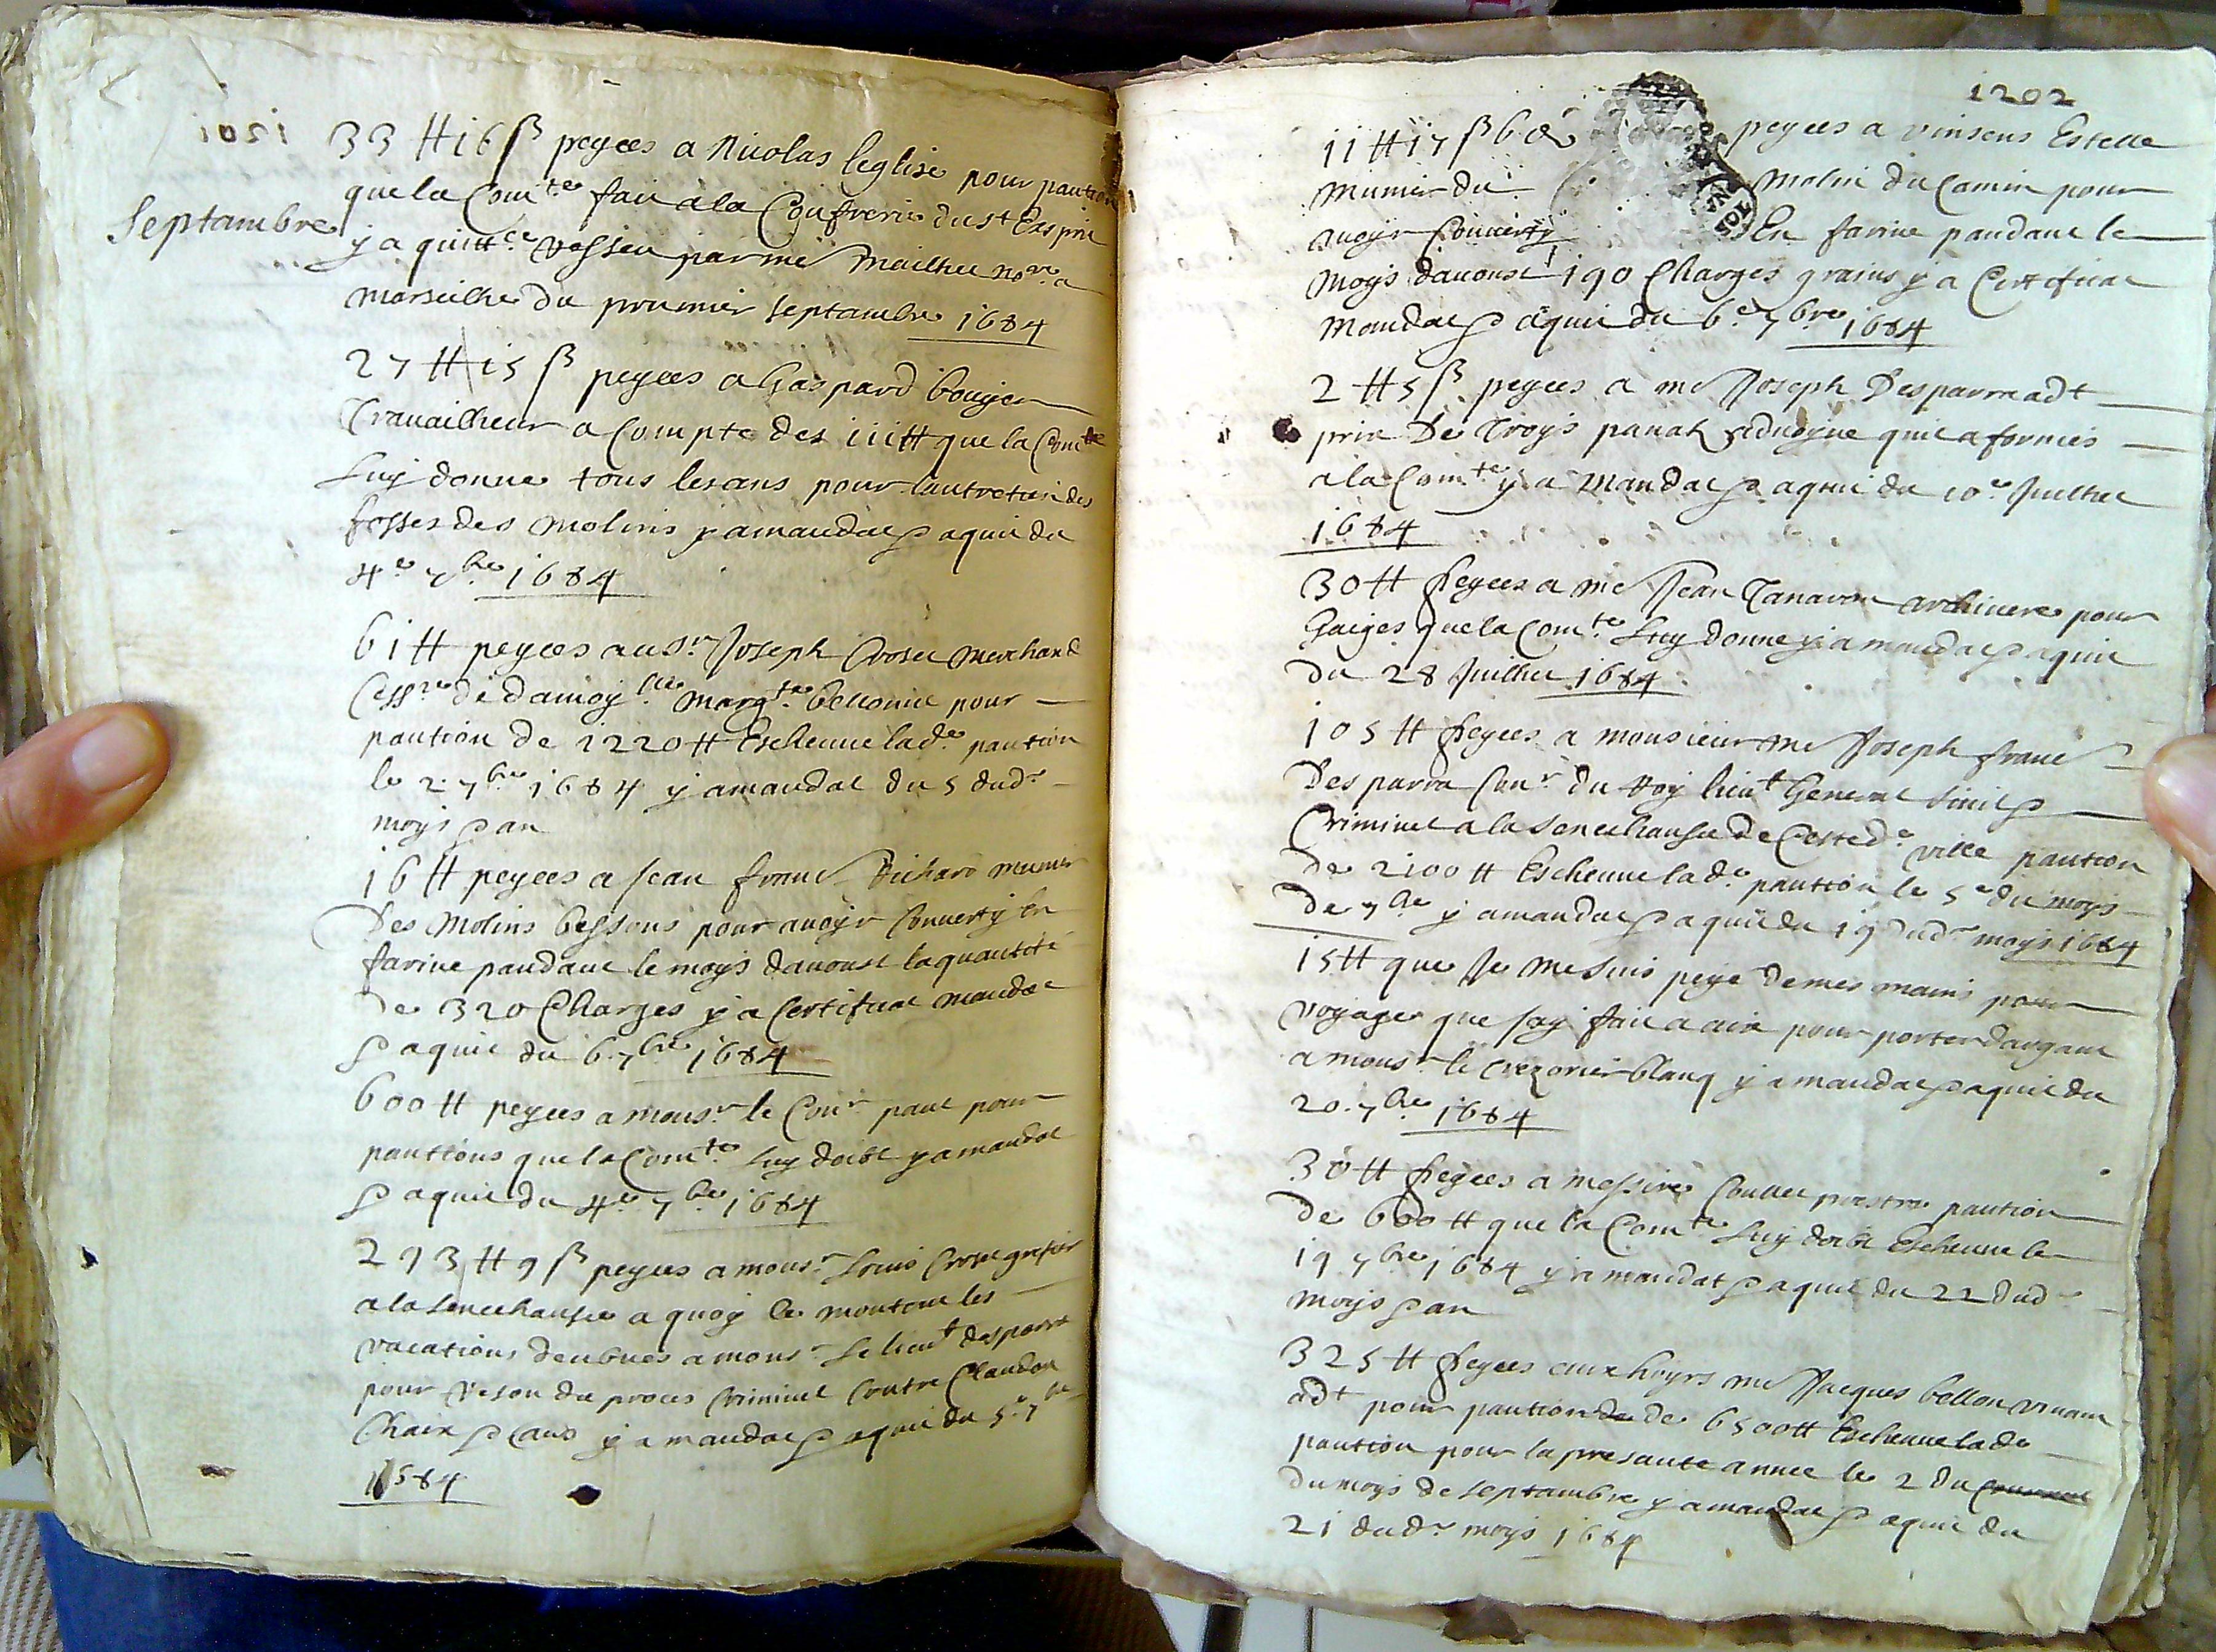 1051
33 ₶ 16 ß peyees a Nicolas leglise pour pantion
que la Com.te fait a la Confrerie du st Esprit
Septambre
y a quitt.ce par me Mailhet no.re a
Marseilhe du premier septambre 1684
27 ₶ 15 ß peyees a Gaspard bouyer
Travailheur a Compte des iii₶ que la Com.te
luy donne tous les ans pour lantretien des
fosses des Molins y a mandat & aquit du
4.e 7bre 1684
61 ₶ peyees au Sr Joseph Croset Merchand
Cess.re de damoy.lle Marg.te bellonne pour
pantion de 1220 ₶ Escheue lad.e pantion
le 2 7bre 1684 y a mandat du 5 dud.t
moys & an
16 ₶ peyees a Jean franc Richard munier
Des Molins bessons pour avoyr Converty En
farine pandant le moys davoust la quantite
de 320 Charges y a Certificat mandat
& aquit du 6. 7bre 1684
600 ₶ peyees a mons.r le Con.r paul pour
pantions que la Com.te luy doibt y a mandat
& aquit du 4.e 7bre 1684
293 ₶ 9 ß peyees a mons.r Louis Croset grefier
a la Senechausee a quoy se montent les
vacations deubues a mons.r le lieut desparra
pour reson du proces Criminel Contre Claudon
Chaix & y a mandat & aquit du 5.e 7bre
1684
1202
11 ₶ 17 ß 6 d peyees a vinsens Estelle
Munier du Molin du Camin pour
avoyr Converty En farine pandant le
Moys davoust 190 Charges grains y a Certificat
Mandat & aquit du 6.e 7bre 1684
2 ₶ 5 ß peyees a me Joseph Desparra adt
prix De Troys panal sivdoyne quil a fornies
a la Com.te y a Mandat & aquit du 10.e Juilhet
1684
30 ₶ peyees a me Jean Tanaron archivere pour
Gaiges que la Com.te Luy donne y a mandat & aquit
du 28 Juilhet 1684
105 ₶ peyees a monsieur me Joseph franc
Desparra Con.r du Roy lieut General Sivil &
Criminel a la Senechausee de Ceste d.e ville pantion
de 2100 ₶ Escheue lad.e pantion le 5.e du moys
de 7bre y a mandat & aquit du 19 dud.t moys 1684
15 ₶ que Je me suis peye de mes mains pour
voyage que Jay fait a aix pour porter dargant
a mons.r le trezorier blanq y a mandat & aquit du
20. 7bre 1684
30 ₶ peyees a messire Coullet prestre pantion
de 600 ₶ que la Com.te luy doibt Escheue le
19 7bre 1684 y a mandat & aquit du 22 dud.t
moys & an
325 ₶ peyees aux hoyrs me Jacques bellon vivant
adt pour pantion de de 6500 ₶ Escheue lade
pantion pour la presante annee le 2 du Courant
du moys de septambre y a mandat & aquit du
21 dud.t moys 1684